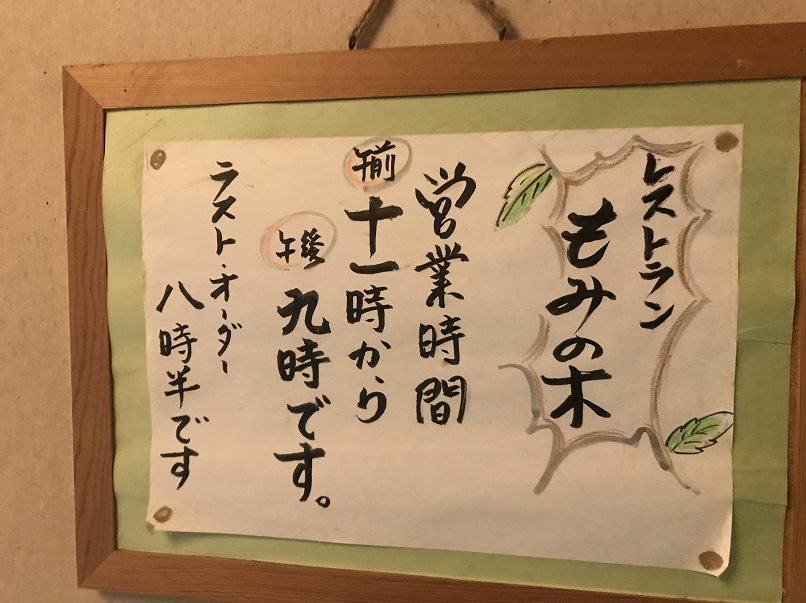 レストラン
もみの木
営業時間
午前十一時から
午後九時です。
ラスト・オーダー
八時半です